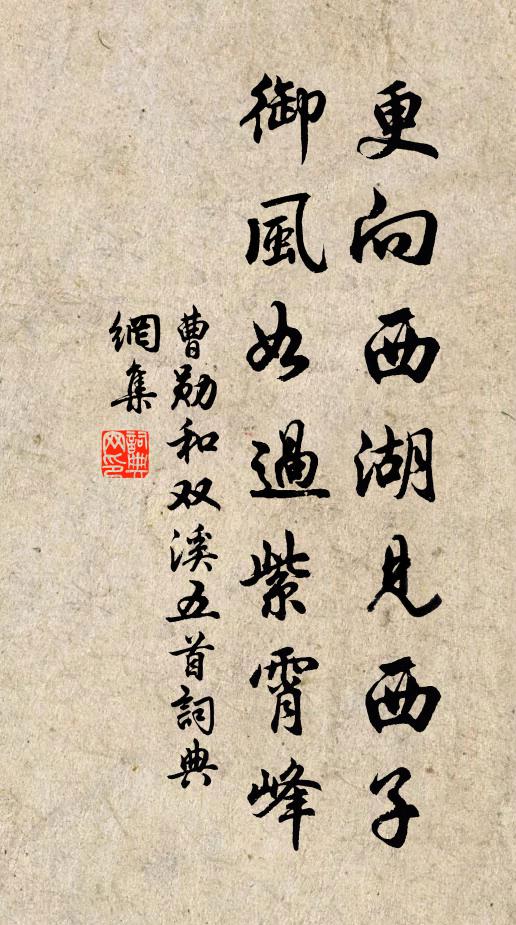 更向西湖見西子
御風如過紫霄峰
曹勛和双溪五首詞典
網集
詞典网印